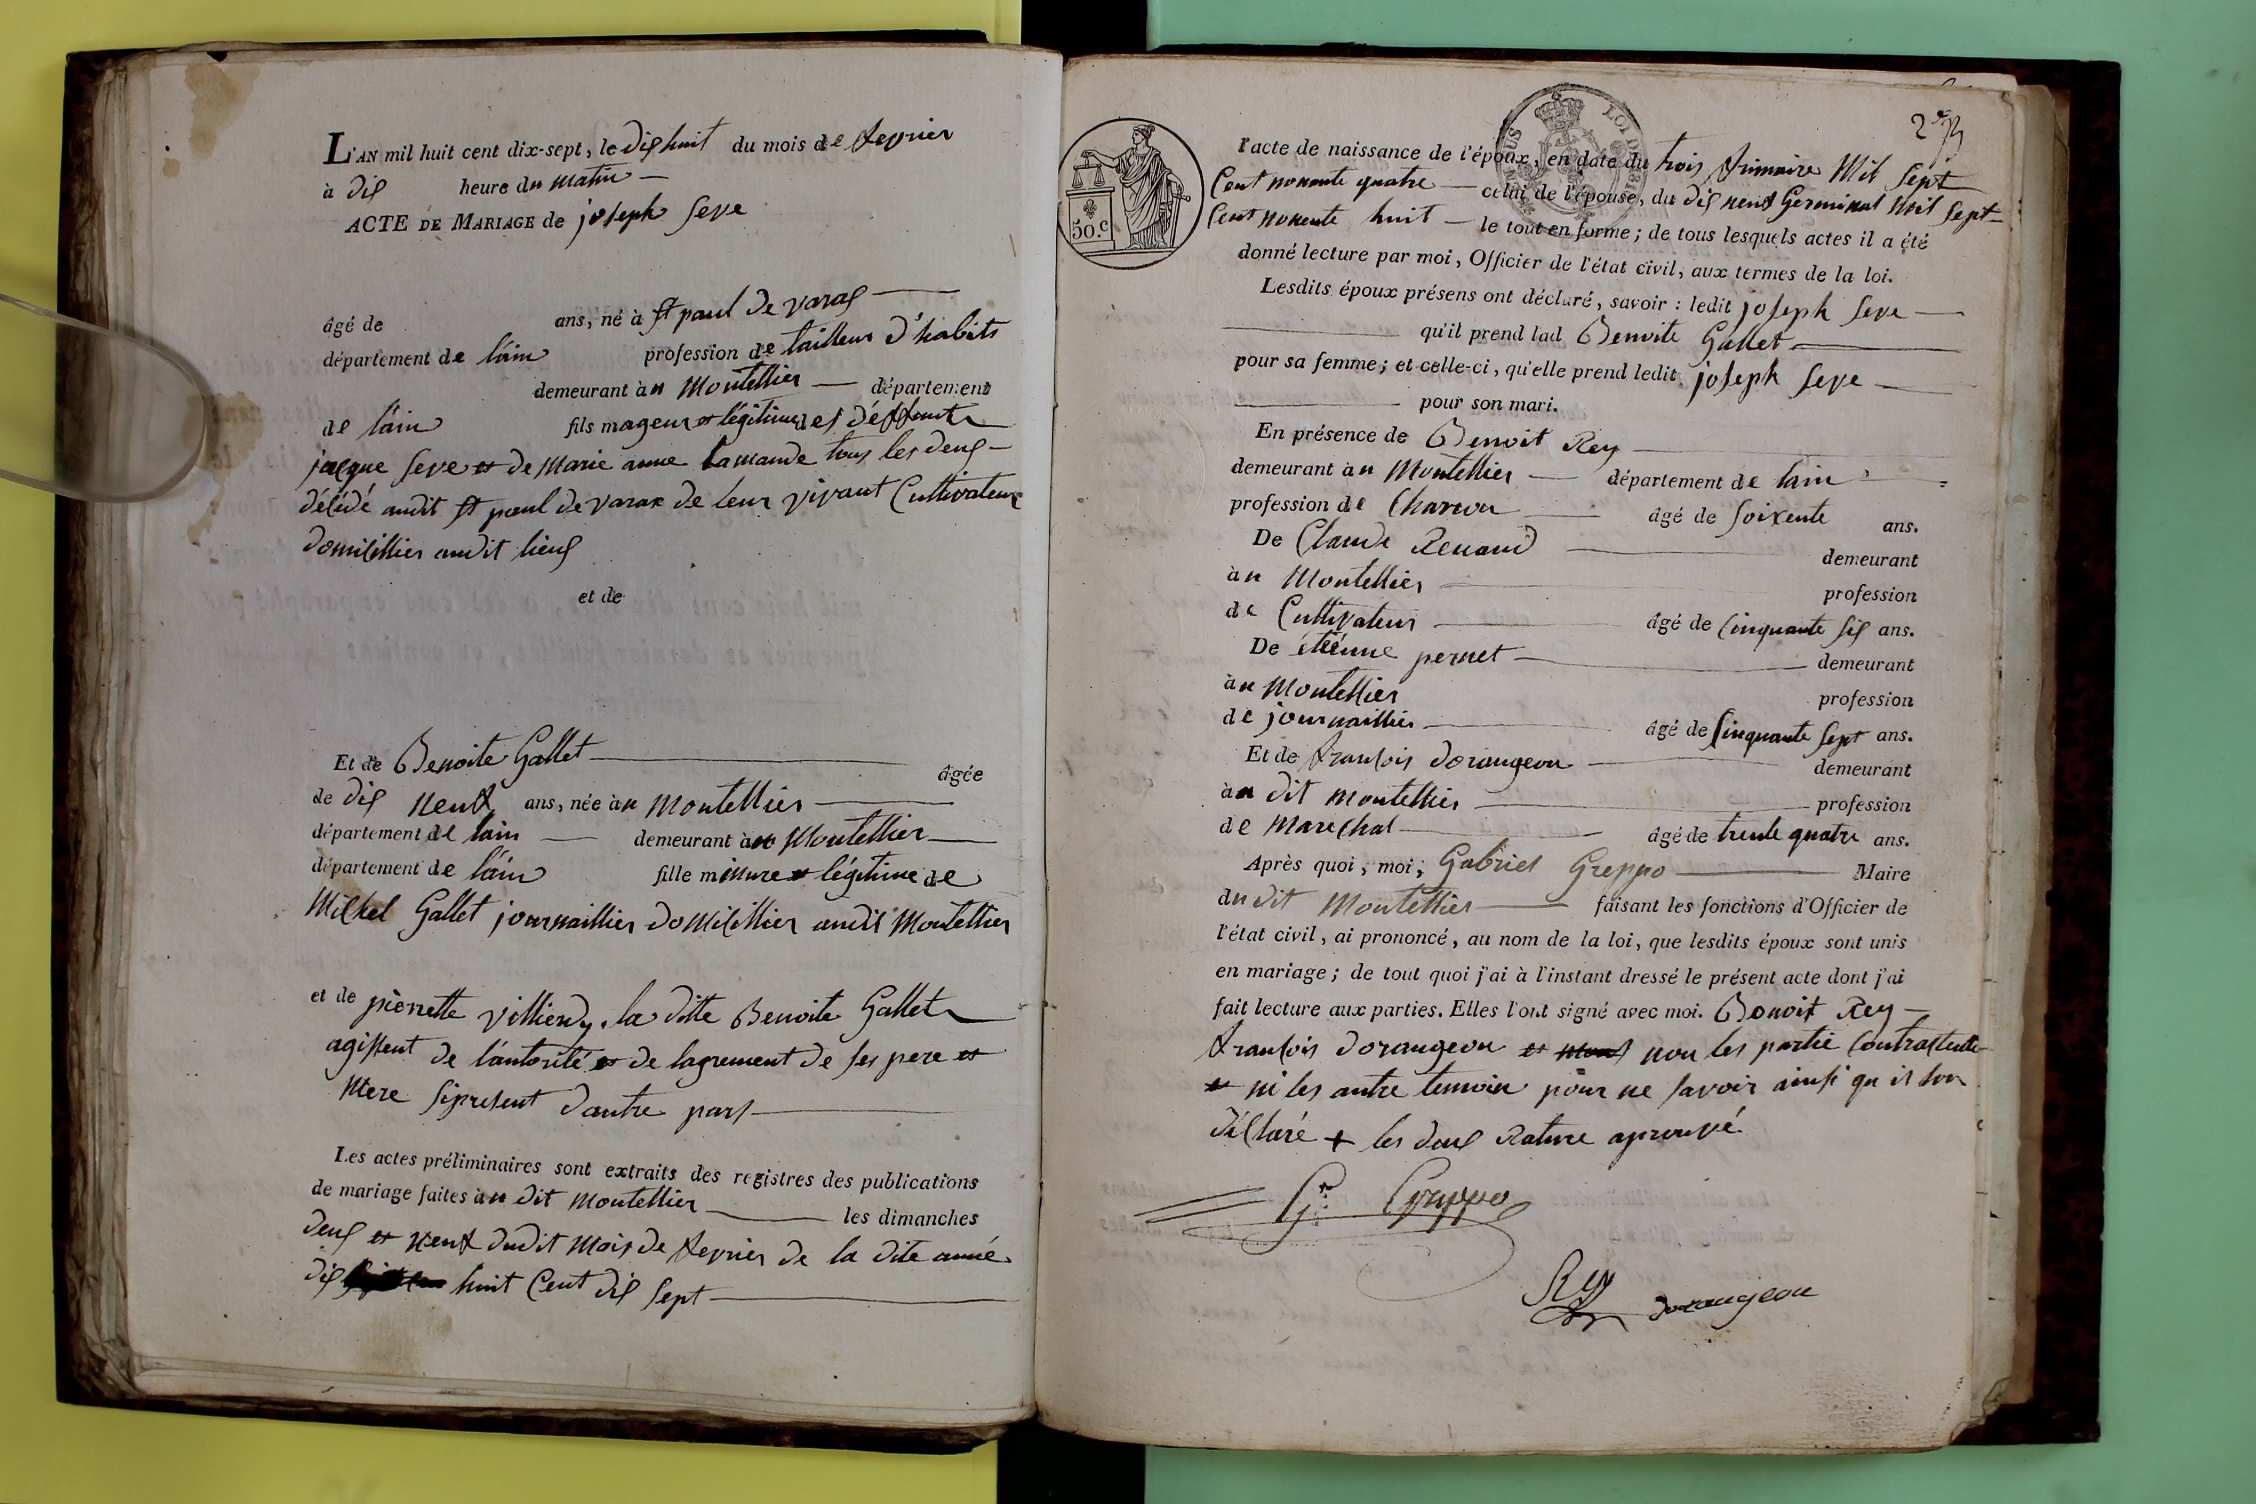 L'AN mil huit cent dix-sept, le dix huit du mois de fevrier
à dix heure du matin
ACTE DE MARIAGE de joseph Seve
âgé de ans, né à st paul de varax
département de l'ain profession de tailleur d'habits
demeurant à u Montellier département
de l'ain fils mageur et légitime des déffunt
jacque Seve et de Marie anne Lamande tous les deux
décédé audit st paul de varax de leur vivant Cultivateur
domicillier audit lieux
et de
Et de Benoite Gallet âgée
de dix neuf ans, née à u Montellier
département de lain demeurant à u Montellier
département de l'ain fille minure et légitime de
Michel Gallet journaillier domicillier audit Montellier
et de pierrette villiendy, la ditte Benoite Gallet
agissent de l'autorité et de lagrement de ses pere et
Mere si present dautre part
Les actes préliminaires sont extraits des registres des publications
de mariage faites à u dit Montellier les dimanches
deux et neuf dudit mois de fevrier de la dite année
dix huit Cent dix sept
2e
50.c
LOI DE 1816
l'acte de naissance de l'époux, en date du trois frimaire Mil Sept
Cent nonente quatre celui de l'épouse, du dix neuf Germinal Mil Sept
Cent nonente huit le tout en forme; de tous lesquels actes il a été
donné lecture par moi, Officier de l'état civil, aux termes de la loi.
Lesdits époux présens ont déclaré, savoir : ledit joseph Seve
qu'il prend lad Benoite Gallet
pour sa femme; et celle-ci, qu'elle prend ledit joseph Seve
pour son mari.
En présence de Benoit Rey
demeurant à u Montellier département de lain
profession de Charron âgé de soixente ans.
De Claude Renaud demeurant
à u Montellier profession
de Cultivateur âgé de Cinquante six ans.
De étiénne pernet demeurant
à u Montellier profession
de journaillier âgé de Cinquante sept ans.
Et de francois dorangeon demeurant
à u dit Montellier profession
de Marechal âgé de trente quatre ans.
Après quoi, moi, Gabriel Greppo Maire
du dit Montellier faisant les fonctions d'Officier de
l'état civil, ai prononcé, au nom de la loi, que lesdits époux sont unis
en mariage; de tout quoi j'ai à l'instant dressé le présent acte dont j'ai
fait lecture aux parties. Elles l'ont signé avec moi. Benoit Rey
francois dorangeon et non les partie Contractente
et ni les autre temoin pour ne savoir ainsi qu il son
déclaré + les deux Rature aprouvé
Gr. Greppo
Rey
dorangeon